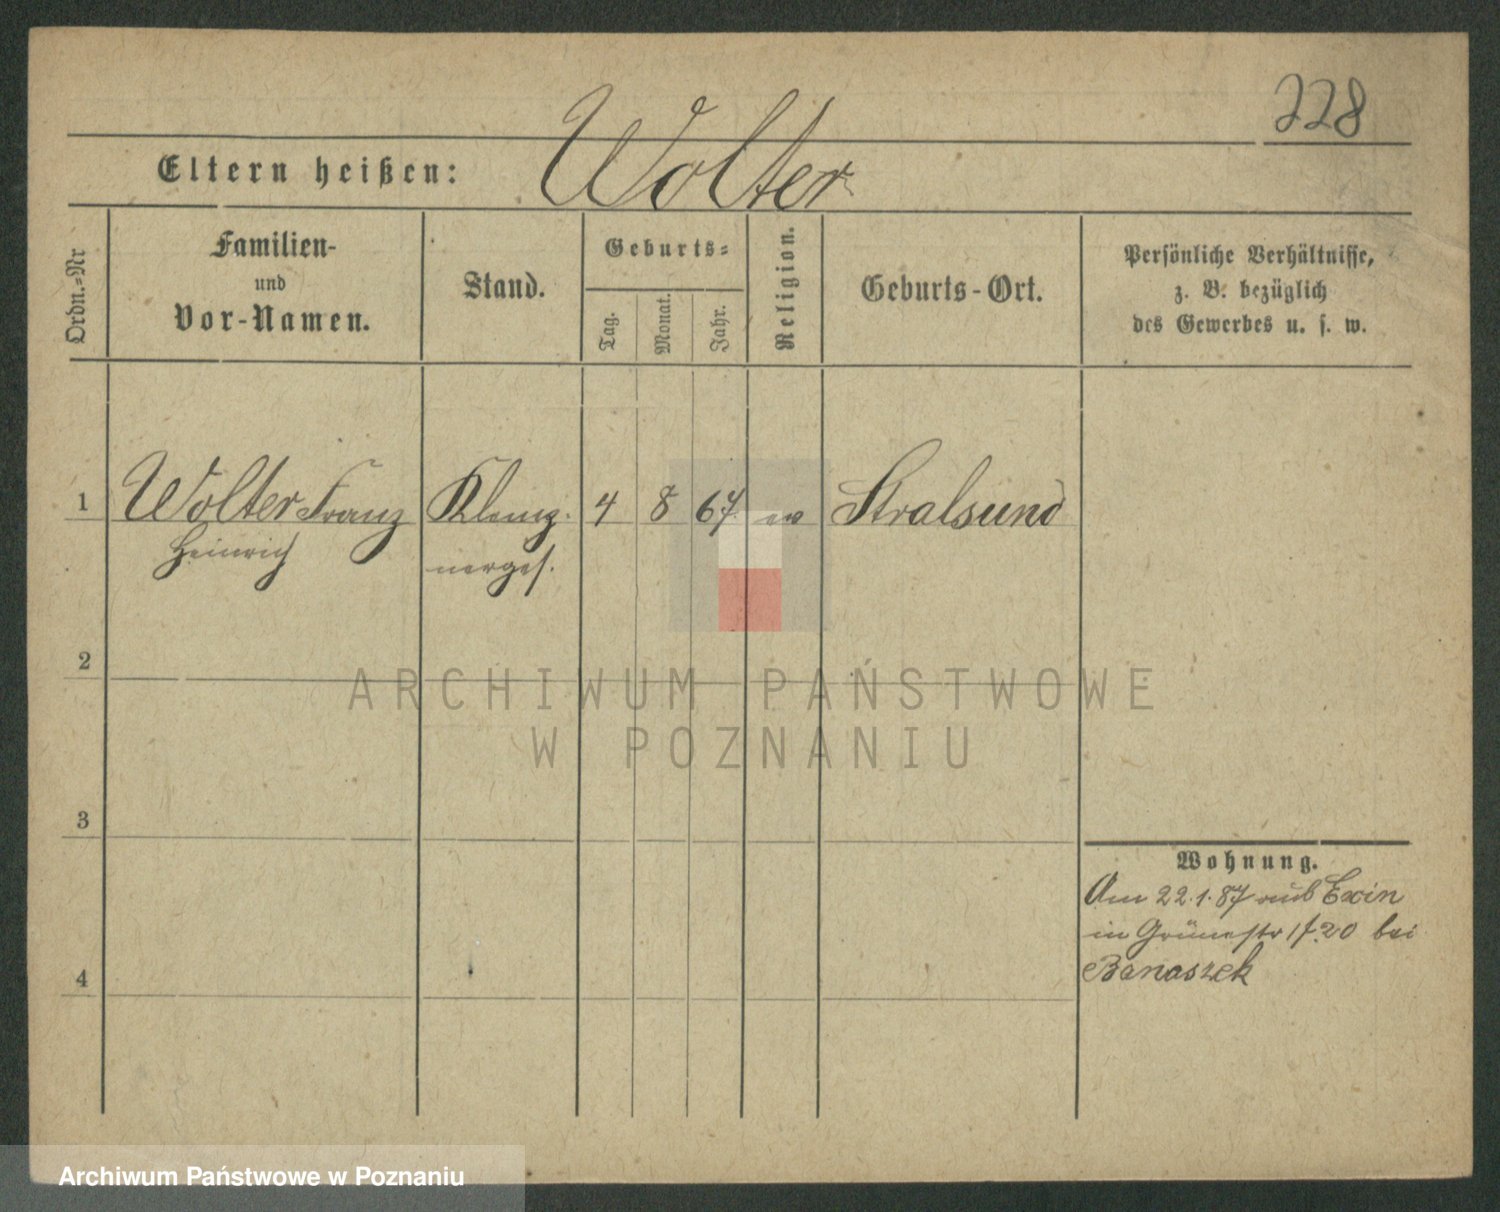 228
Eltern heißen: Wolter
Ordn.-Nr
Familien-
und
Vor-Namen.
Stand.
Geburts-
Tag.
Monat.
Jahr.
Religion.
Geburts-Ort.
Persönliche Verhältnisse,
z. B. bezüglich
des Gewerbes u. s. w.
1 Wolter Franz Klemp- 4 8 67 ev Stralsund
Heinrich nerges.
2
ARCHIWUM PAŃSTWOWE
W POZNANIU
3
Wohnung.
Am 22.1.87 aus Exin
in Grünestr 20 bei
Banaszek
4
Archiwum Państwowe w Poznaniu